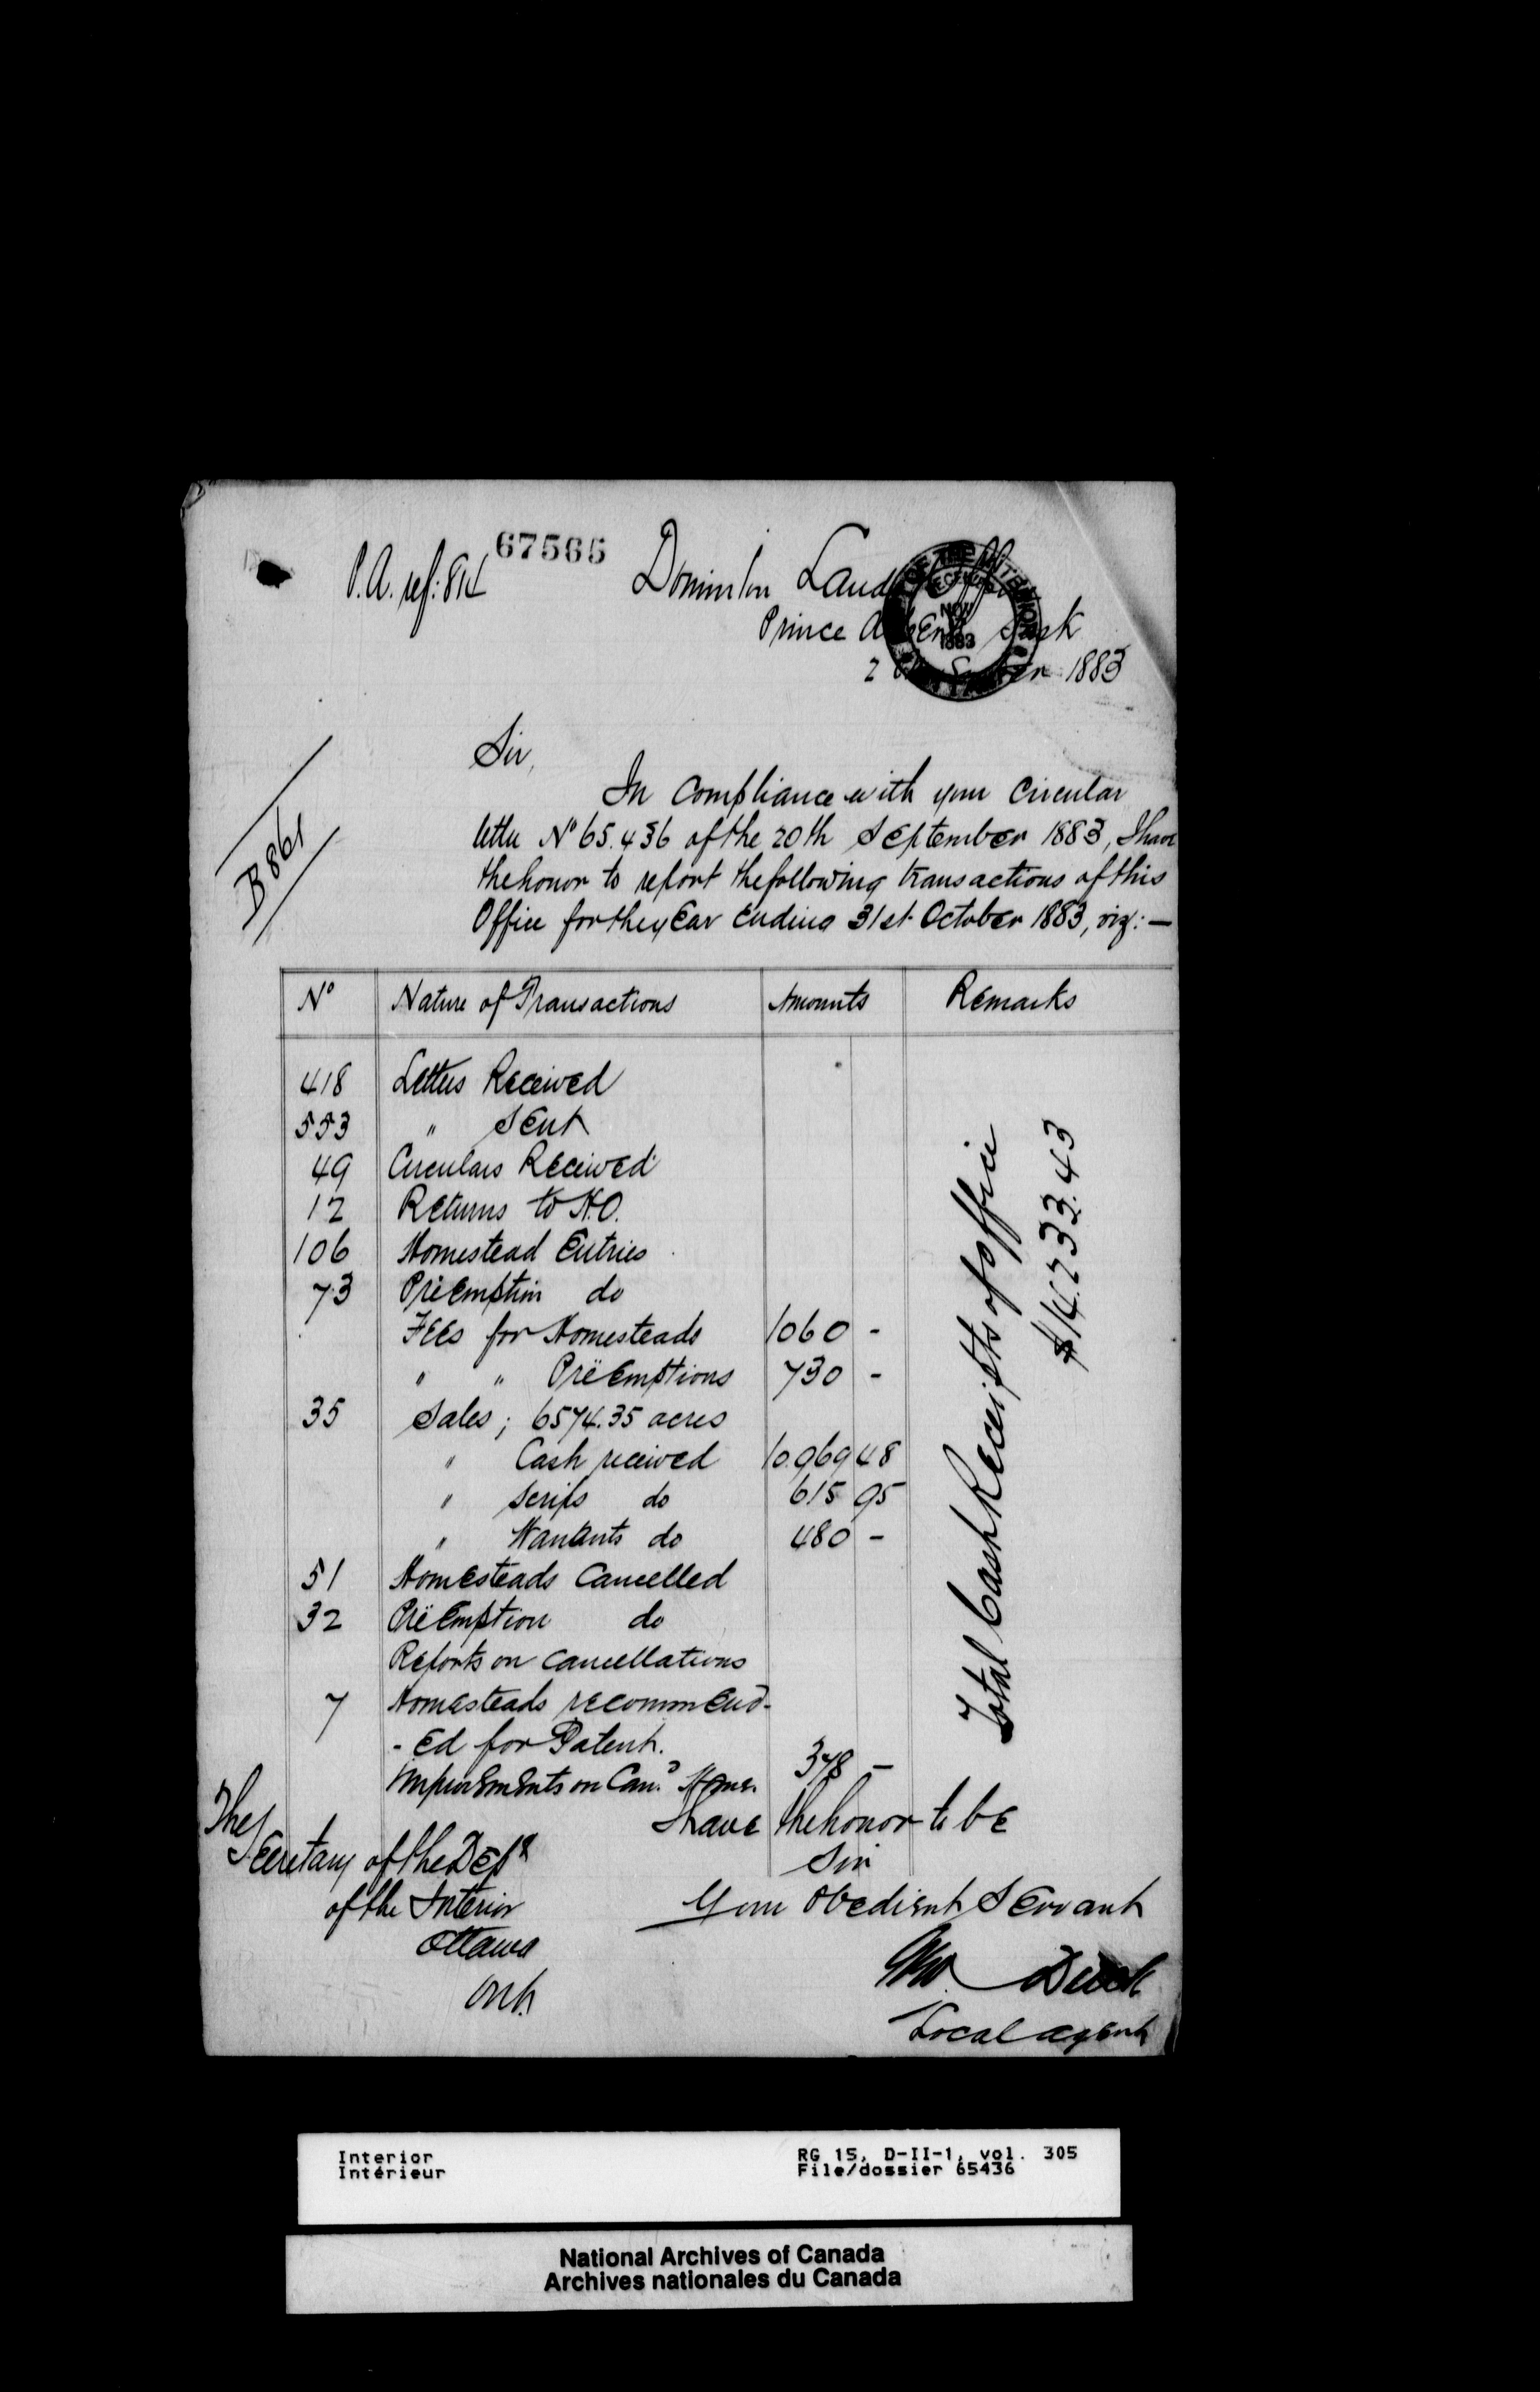 67565
P.A. ref: 814
Dominion Lands Office
Prince Albert Sask
1883
OF THE INTERIOR
RECEIVED
NOV
1883
B861
Sir,
In compliance with your circular
letter Nº 65.436 of the 20th September 1883, I have
the honor to report the following transactions of this
Office for the year ending 31st October 1883, viz: —
Nº Nature of Transactions Amounts Remarks
418 Letters Received
553 " Sent
49 Circulars Received
12 Returns to H.O.
106 Homestead Entries
73 Prëemption do
Fees for Homesteads 1060 -
" " Prëemptions 730 -
35 Sales; 6574.35 acres
" Cash received 10.969 48
" Scrips do 615 95
" Warrants do 480 -
51 Homesteads Cancelled
32 Prëemption do
Reports on cancellations
7 Homesteads recommend-
- ed for Patent.
Improvements on Can.d Home. 378 -
Total Cash Receipts of office
$14.233.43
I have the honor to be
Sir
Your Obedient Servant
Jno. Duck
Local agent
The
Secretary of the Dept
of the Interior
Ottawa
Ont.
Interior
Intérieur
RG 15, D-II-1, vol. 305
File/dossier 65436
National Archives of Canada
Archives nationales du Canada